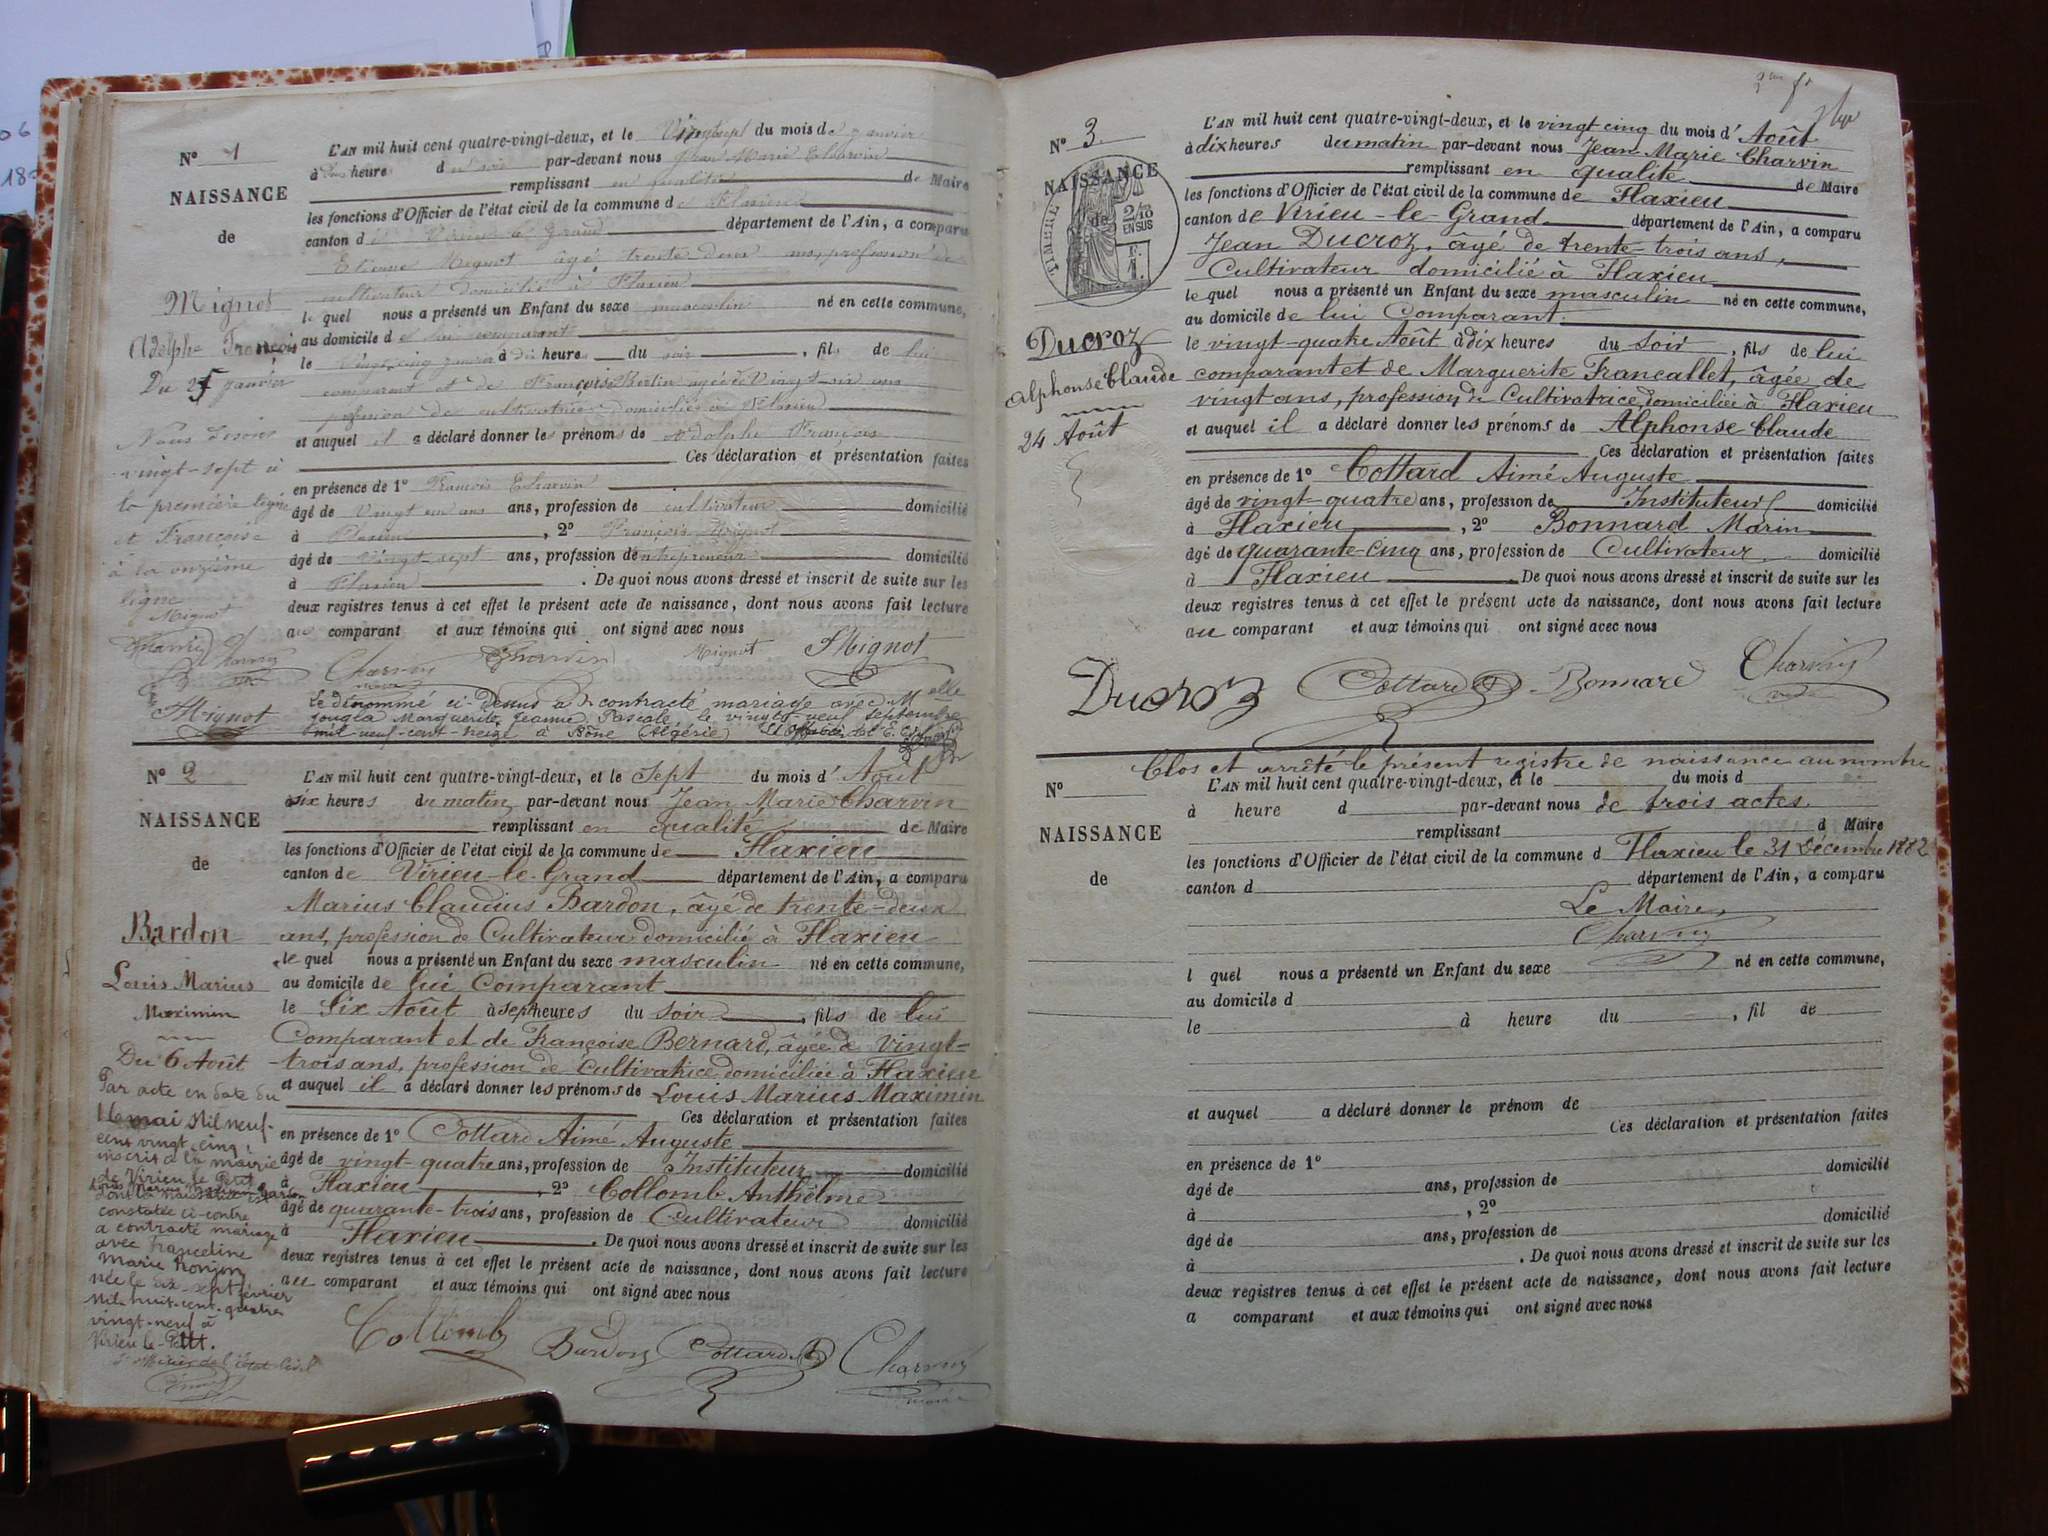 N° 1
NAISSANCE
de
Mignot
Adolphe François
Du 25 janvier
Nous disons
vingt-sept à
la première ligne
et Françoise
à la onzième
ligne
Mignot
Mignot
L'AN mil huit cent quatre-vingt-deux, et le Vingt sept du mois de janvier
à heures du soir par-devant nous Jean Marie Charvin
remplissant en qualité de Maire
les fonctions d'Officier de l'état civil de la commune de Flaxieu
canton de Virieu le Grand département de l'Ain, a comparu
Etienne Mignot âgé trente deux ans, profession de
cultivateur domicilié à Flaxieu
le quel nous a présenté un Enfant du sexe masculin né en cette commune,
au domicile de lui comparant
le Vingt cinq janvier à dix heures du soir, fils de lui
comparant et de Françoise Berlin agée de Vingt-six ans
profession de cultivatrice domiciliée à Flaxieu
et auquel il a déclaré donner les prénoms de Adolphe François
Ces déclaration et présentation faites
en présence de 1° François Charvin
âgé de Vingt un ans ans, profession de cultivateur domicilié
à Flaxieu, 2° François Mignot
âgé de vingt-sept ans, profession d'entrepreneur domicilié
à Flaxieu. De quoi nous avons dressé et inscrit de suite sur les
deux registres tenus à cet effet le présent acte de naissance, dont nous avons fait lecture
au comparant et aux témoins qui ont signé avec nous
Charvin Charvin Mignot FMignot
Le dénommé ci-dessus a contracté mariage avec Melle
Jougla Marguerite, Jeanne, Pascale, le vingt-neuf septembre
mil-neuf-cent-seize à Bône (Algérie)
N° 2
NAISSANCE
de
Bardon
Louis Marius
Maximin
Du 6 Août
Par acte en date du
mai Mil neuf-
cent vingt cinq,
inscrit à la mairie
de Virieu le Petit
constatée ci-contre
a contracté mariage
avec Franceline
Marie Honjon
née le dix-sept février
Mil-huit-cent-quatre
vingt-neuf à
Virieu-le-Petit.
L'officier de l'Etat-Civil
L'AN mil huit cent quatre-vingt-deux, et le Sept du mois d'Août
à six heures du matin par-devant nous Jean Marie Charvin
remplissant en qualité de Maire
les fonctions d'Officier de l'état civil de la commune de Flaxieu
canton de Virieu-le-Grand département de l'Ain, a comparu
Marius Claudius Bardon, âgé de trente-deux
ans, profession de Cultivateur domicilié à Flaxieu
le quel nous a présenté un Enfant du sexe masculin né en cette commune,
au domicile de lui Comparant
le Six Août à sept heures du soir, fils de lui
Comparant et de Françoise Bernard, âgée de vingt-
trois ans, profession de Cultivatrice domiciliée à Flaxieu
et auquel il a déclaré donner les prénoms de Louis Marius Maximin
Ces déclaration et présentation faites
en présence de 1° Cottard Aimé Auguste
âgé de vingt-quatre ans, profession de Instituteur domicilié
à Flaxieu, 2° Collomb Anthelme
âgé de quarante-trois ans, profession de Cultivateur domicilié
à Flaxieu. De quoi nous avons dressé et inscrit de suite sur les
deux registres tenus à cet effet le présent acte de naissance, dont nous avons fait lecture
au comparant et aux témoins qui ont signé avec nous
Collomb Bardon Cottard Charvin
N° 3.
NAISSANCE
de
TIMBRE
2/10
EN SUS
F.
1.
Ducroz
Alphonse Claude
24 Août
L'AN mil huit cent quatre-vingt-deux, et le vingt cinq du mois d'Août
à dix heures du matin par-devant nous Jean Marie Charvin
remplissant en qualité de Maire
les fonctions d'Officier de l'état civil de la commune de Flaxieu
canton de Virieu-le-Grand département de l'Ain, a comparu
Jean Ducroz, âgé de trente-trois ans,
Cultivateur domicilié à Flaxieu
le quel nous a présenté un Enfant du sexe masculin né en cette commune,
au domicile de lui Comparant.
le vingt-quatre Août à dix heures du Soir, fils de lui
comparant et de Marguerite Francallet, âgée de
vingt ans, profession de Cultivatrice domiciliée à Flaxieu
et auquel il a déclaré donner les prénoms de Alphonse Claude
Ces déclaration et présentation faites
en présence de 1° Cottard Aimé Auguste
âgé de vingt-quatre ans, profession de Instituteur domicilié
à Flaxieu, 2° Bonnard Marin
âgé de quarante-cinq ans, profession de Cultivateur domicilié
à Flaxieu. De quoi nous avons dressé et inscrit de suite sur les
deux registres tenus à cet effet le présent acte de naissance, dont nous avons fait lecture
au comparant et aux témoins qui ont signé avec nous
Ducroz Cottard Bonnard Charvin
Clos et arrêté le présent registre de naissance au nombre
N°
NAISSANCE
de
L'AN mil huit cent quatre-vingt-deux, et le du mois d
à heure d par-devant nous de trois actes.
remplissant d Maire
les fonctions d'Officier de l'état civil de la commune d Flaxieu le 31 Décembre 1882
canton d département de l'Ain, a comparu
Le Maire,
Charvin
l quel nous a présenté un Enfant du sexe né en cette commune,
au domicile d
le à heure du, fil de
et auquel a déclaré donner le prénom de
Ces déclaration et présentation faites
en présence de 1°
âgé de ans, profession de domicilié
à, 2°
âgé de ans, profession de domicilié
à. De quoi nous avons dressé et inscrit de suite sur les
deux registres tenus à cet effet le présent acte de naissance, dont nous avons fait lecture
a comparant et aux témoins qui ont signé avec nous